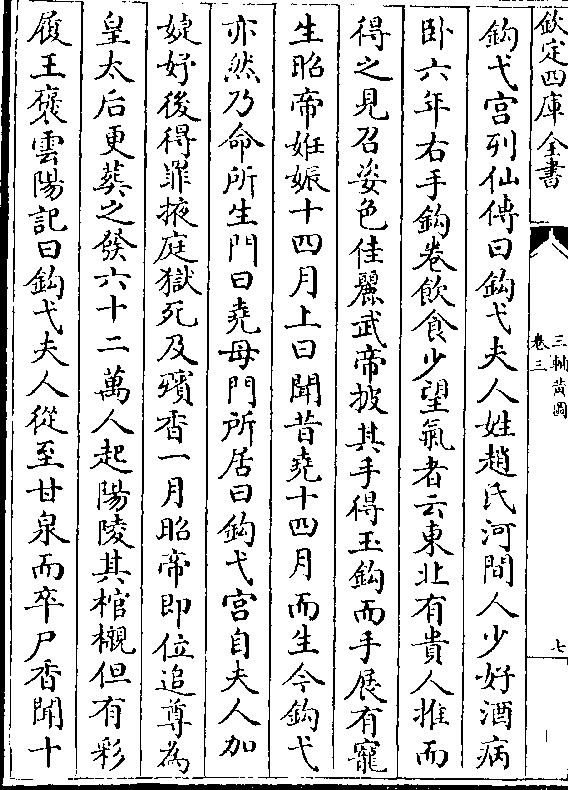 欽定四庫全書
三輔黃圖
卷三
七
鈎弋宮列仙傳曰鈎弋夫人姓趙氏河間人少好酒病
卧六年右手鈎卷飲食少望氣者云東北有貴人推而
得之見召姿色佳麗武帝披其手得玉鈎而手展有寵
生昭帝姙娠十四月上曰聞昔堯十四月而生今鈎弋
亦然乃命所生門曰堯母門所居曰鈎弋宮自夫人加
婕妤後得罪掖庭獄死及殯香一月昭帝即位追尊為
皇太后更葬之發六十二萬人起陽陵其棺櫬但有彩
履王褒雲陽記曰鈎弋夫人從至甘泉而卒尸香聞十